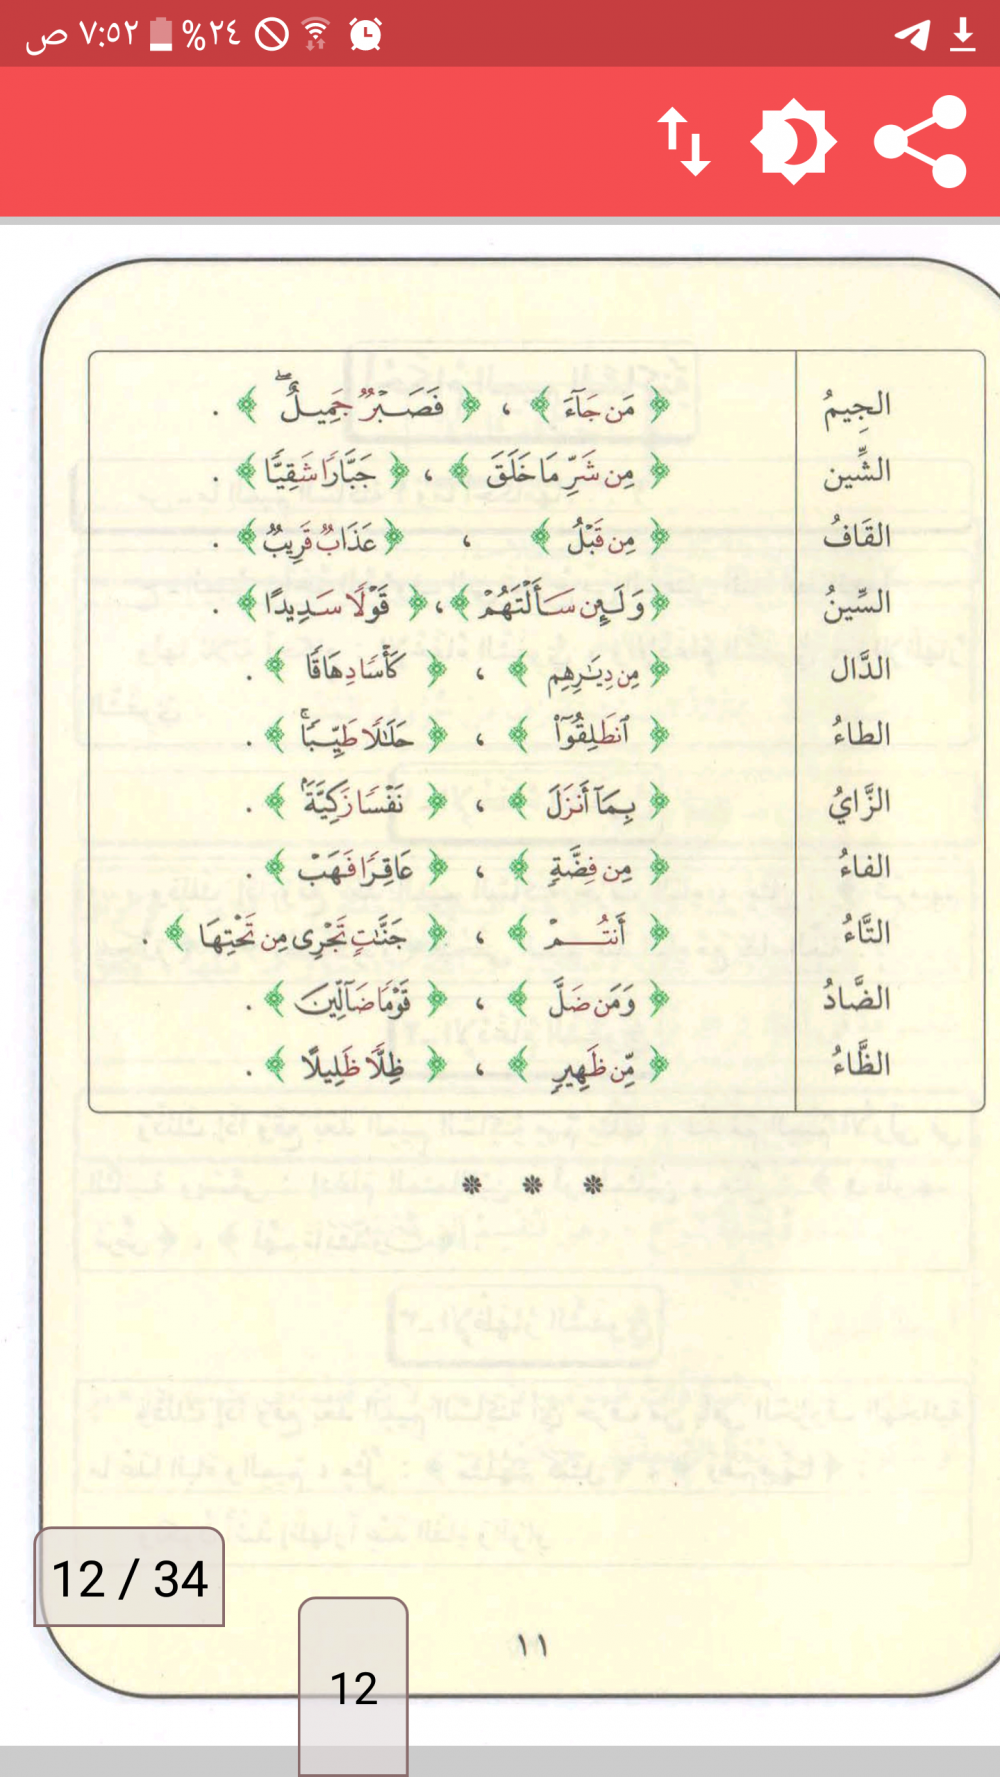 ٧:٥٢ ص ٢٤%
الجِيمُ ﴿ مَن جَآءَ ﴾ ، ﴿ فَصَبْرٌ جَمِيلٌ ۖ ﴾ .
الشِّين ﴿ مِن شَرِّ مَا خَلَقَ ﴾ ، ﴿ جَبَّارًا شَقِيًّا ﴾ .
القَافُ ﴿ مِن قَبْلُ ﴾ ، ﴿ عَذَابٌ قَرِيبٌ ﴾ .
السِّينُ ﴿ وَلَئِن سَأَلْتَهُمْ ﴾ ، ﴿ قَوْلًا سَدِيدًا ﴾ .
الدَّال ﴿ مِن دِيَٰرِهِم ﴾ ، ﴿ كَأْسًا دِهَاقًا ﴾ .
الطاءُ ﴿ ٱنطَلِقُوٓا۟ ﴾ ، ﴿ حَلَٰلًا طَيِّبًا ۚ ﴾ .
الزَّايُ ﴿ بِمَآ أَنزَلَ ﴾ ، ﴿ نَفْسًا زَكِيَّةًۢ ﴾ .
الفاءُ ﴿ مِن فِضَّةٍ ﴾ ، ﴿ عَاقِرًا فَهَبْ ﴾ .
التَّاءُ ﴿ أَنتُمْ ﴾ ، ﴿ جَنَّٰتٍ تَجْرِى مِن تَحْتِهَا ﴾ .
الضَّادُ ﴿ وَمَن ضَلَّ ﴾ ، ﴿ قَوْمًا ضَآلِّينَ ﴾ .
الظَّاءُ ﴿ مِّن ظَهِيرٍ ﴾ ، ﴿ ظِلًّا ظَلِيلًا ﴾ .
* * *
12 / 34
١١
12